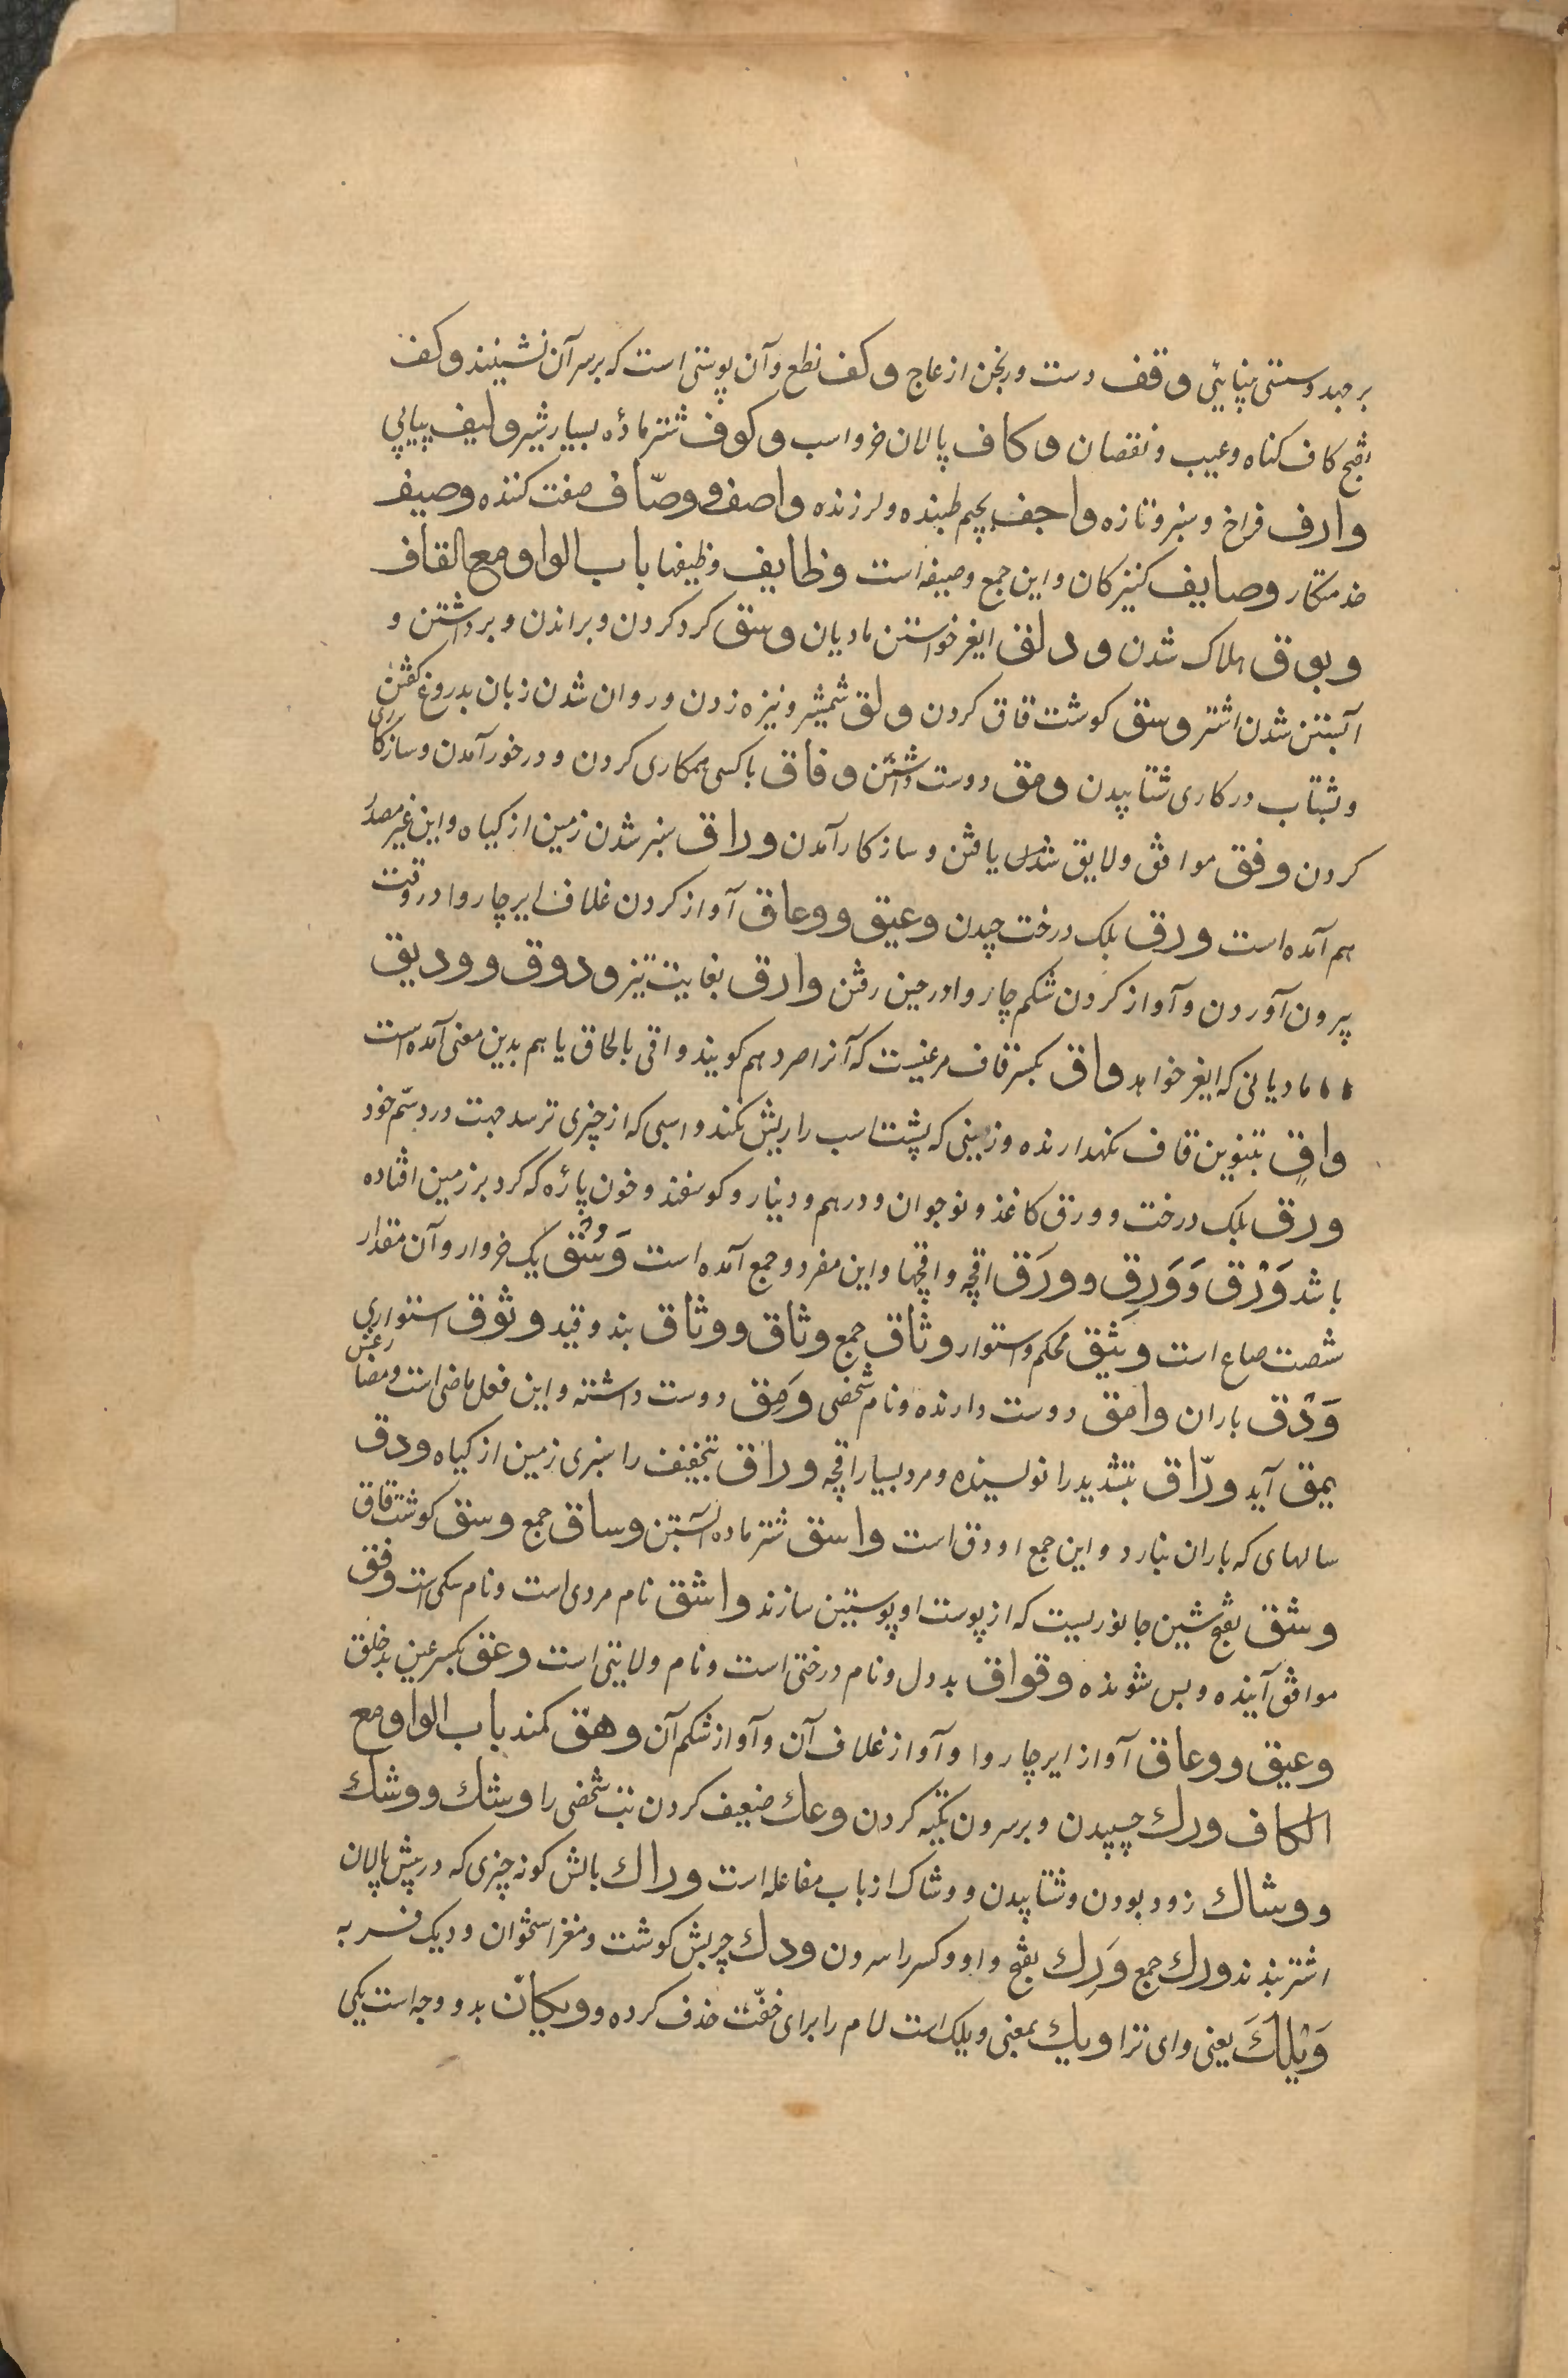 بر جهد و سستی بینایی وقف دست ورنجن از عاج وکف نطع و آن پوستی است که بر سر آن نشینند وکف
بفتح کاف کناه و عیب و نقصان وکاف پالان خر و اسب وکوف شتر ماده بسیار شیر ولیف پیاپی
وارف فراخ و سبز و تازه واجف بجیم طپنده و لرزنده واصف ووصّاف صفت کننده وصیف
خدمتکار وصایف کنیزکان و این جمع وصیفه است وظایف وظیفها باب الواو مع القاف
وبوق هلاک شدن ودلق ایغر خواستن مادیان وسق کرد کردن و براندن و برداشتن و
آبستن شدن اشتر وسق کوشت قاق کردن ولق شمشیر و نیزه زدن و روان شدن زبان بدروغ گفتن
و بشتاب در کاری شتابیدن ومق دوست داشتن وفاق با کسی همکاری کردن و در خور آمدن و سازکاری
کردن وفق موافق و لایق شدن یافتن و سازکار آمدن وراق سبز شدن زمین از کیاه و این غیر مصدر
هم آمده است ورق بلک درخت چیدن وعیق ووعاق آواز کردن غلاف ایر چاروا در وقت
بیرون آوردن و آواز کردن شکم چاروا در حین رفتن وارق بغایت تیز ودوق وودیق
مادیانی که ایغر خواهد واق بکسر قاف مرغیست که آنرا صرد هم کویند و اقی بالحاق یا هم بدین معنی آمده است
واقٍ بتنوین قاف نکهدارنده و زینی که پشت اسب را ریش نکند و اسبی که از چیزی ترسد جهت درد سم خود
ورق بلک درخت و ورق کاغذ و نوجوان و درهم و دینار و کوسفند و خون پاره که کرد بر زمین افتاده
باشد وَرْق وَوَرِق وورَق اقچه و اقچها و این مفرد و جمع آمده است وَسْق یک خروار و آن مقدار
شصت صاع است وثیق محکم و استوار وثاق جمع وثاق ووثاق بند و قید وثوق استواری
وَدْق باران وامق دوست دارنده و نام شخصی وَمِق دوست داشته و این فعل ماضی است و مضارعش
یمق آید ورّاق بتشدید را نویسنده و مرد بسیار اقچه وراق بتخفیف را سبزی زمین از کیاه ودق
سالهای که باران نبارد و این جمع اودق است واسق شتر ماده آبستن وساق جمع وسق کوشت قاق
وشق بفتح شین جانوریست که از پوست او پوستین سازند واشق نام مردی است و نام سکی است وفق
موافق آینده و بس شونده وقواق بددل و نام درختی است و نام ولایتی است وعق بکسر عین بدخلق
وعیق ووعاق آواز ایر چاروا و آواز غلاف آن و آواز شکم آن وهق کمند باب الواو مع
الکاف ورك چسپیدن و بر سرون تکیه کردن وعك ضعیف کردن تب شخصی را وشك ووشك
ووشاك زود بودن و شتابیدن و وشاک از باب مفاعله است وراك بالش کونه چیزی که در پیش پالان
اشتر بندند ورك جمع وَرِك بفتح واو و کسر را سرون ودك چربش کوشت و مغز استخوان و دیک فربه
وَیْلَكَ یعنی وای ترا ویك بمعنی ویلک است لام را برای خفّت حذف کرده وویکان بدو وجه است یکی